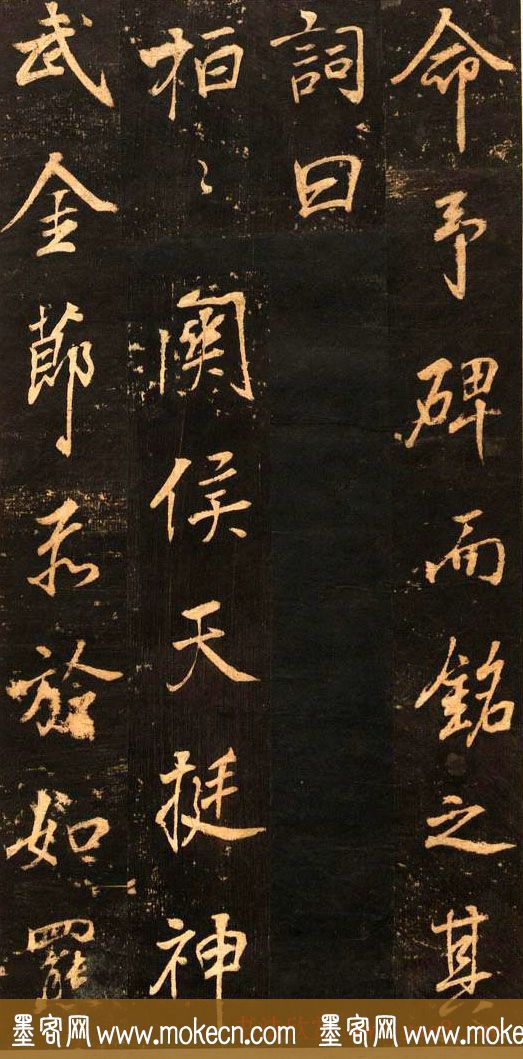 命予碑而銘之其
詞曰
桓〻關侯天挺神
武金節放如
墨客网 www.mokecn.com 墨客网 www.mokecn.com